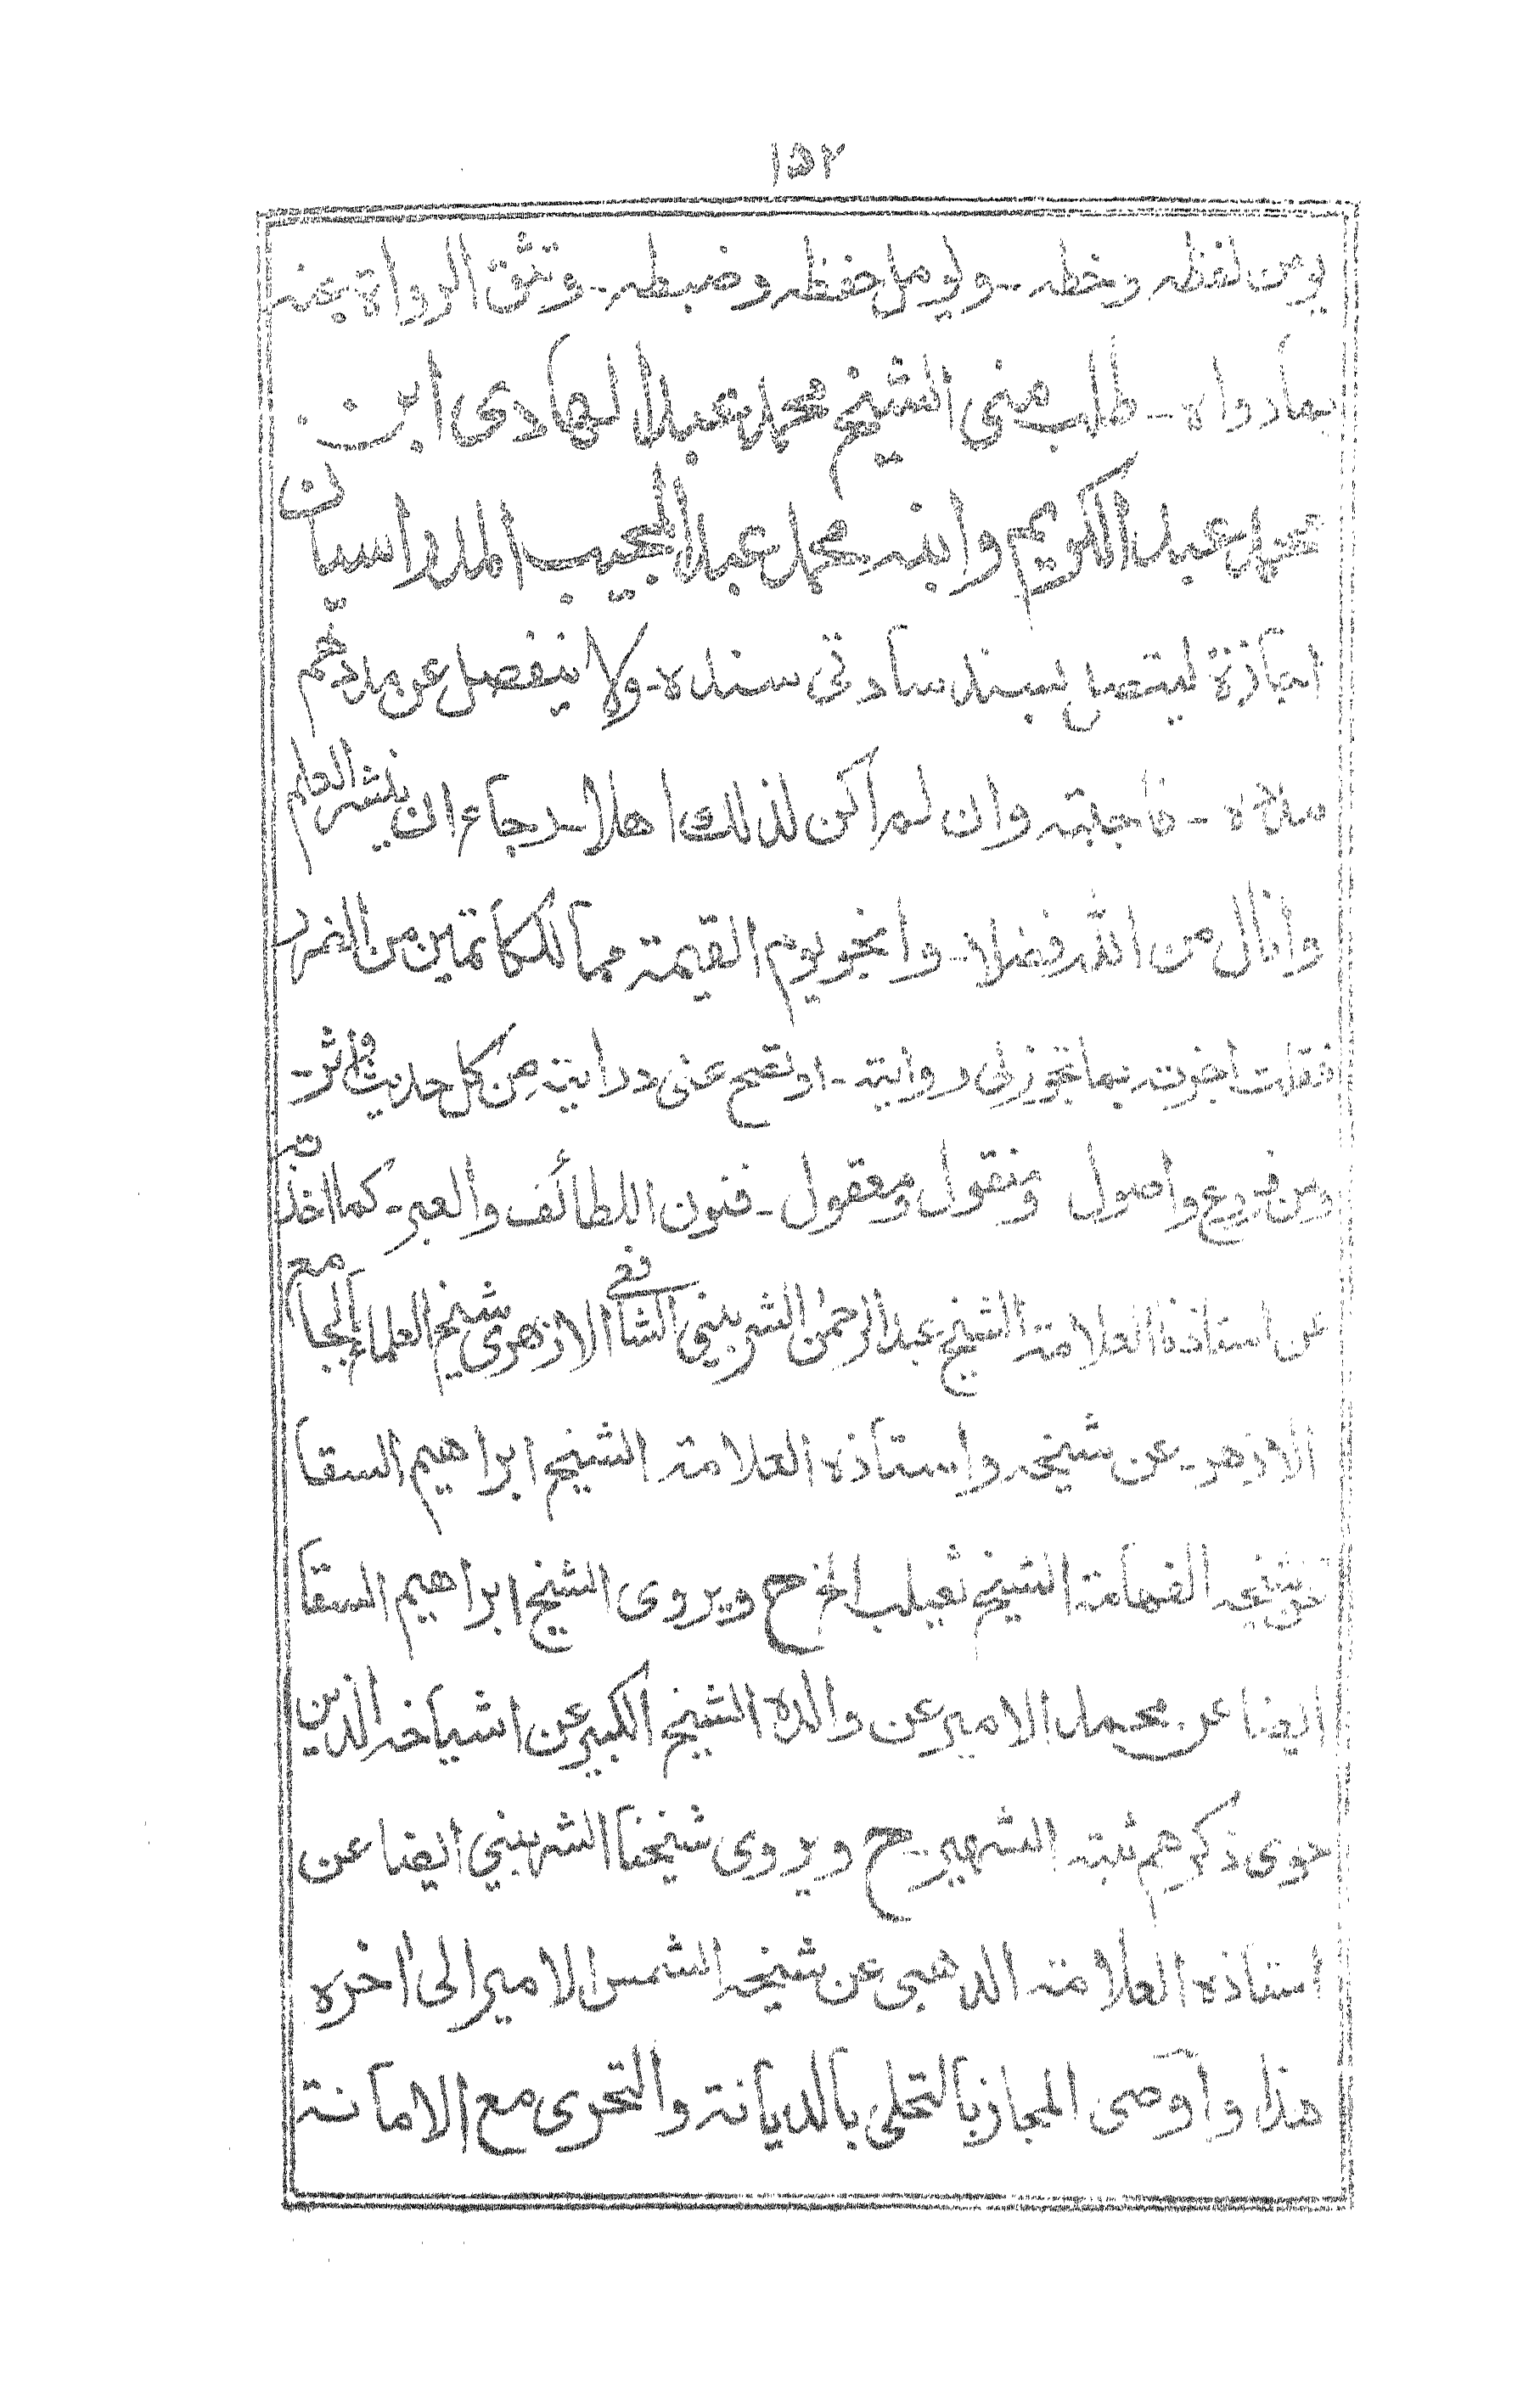 ١٥٢
يومن لفظه وخطه - ويومل حفظه وضبطه - وتثق الرواة عنه
بما رواه - طلب منى الشيخ محمد عبد الهادى ابن
محمد عبد الكريم وابنه محمد عبد المجيب المدراسيان
اجازة ليتصل بسند ساداتى سنده - ولا ينفصل عن مددهم
مدده - فاجبته وان لم اكن لذلك اهلا - رجاء ان ينشر العلم
وانال من الله فضلا - وانجو يوم القيمة مما للكاتمين من الضرر
فقلت اجزته بما تجوز لى روايته - او تصح عنى درايته من كل حديث واثر -
ومن فروع واصول ومنقول ومعقول - فنون اللطائف والعبر - كما اخذته
عن استاذنا العلامة الشيخ عبد الرحمن الشربيني الشافعى الازهرى شيخ العلماء الجامع
الازهر - عن شيخه واستاذه العلامة الشيخ ابراهيم السقا
عن شيخه الفهامة الشيخ ثعيلب الخ ح ويروى الشيخ ابراهيم السقا
ايضا عن محمد الامير عن والده الشيخ الكبير عن اشياخه الذين
حوى ذكرهم ثبته الشهير - ح ويروى شيخنا الشربيني ايضا عن
استاذه العلامة الذهبى عن شيخه الشمس الامير الى اخره
هذا وأوصى المجاز بالتحلى بالديانة والتحرى مع الامانة